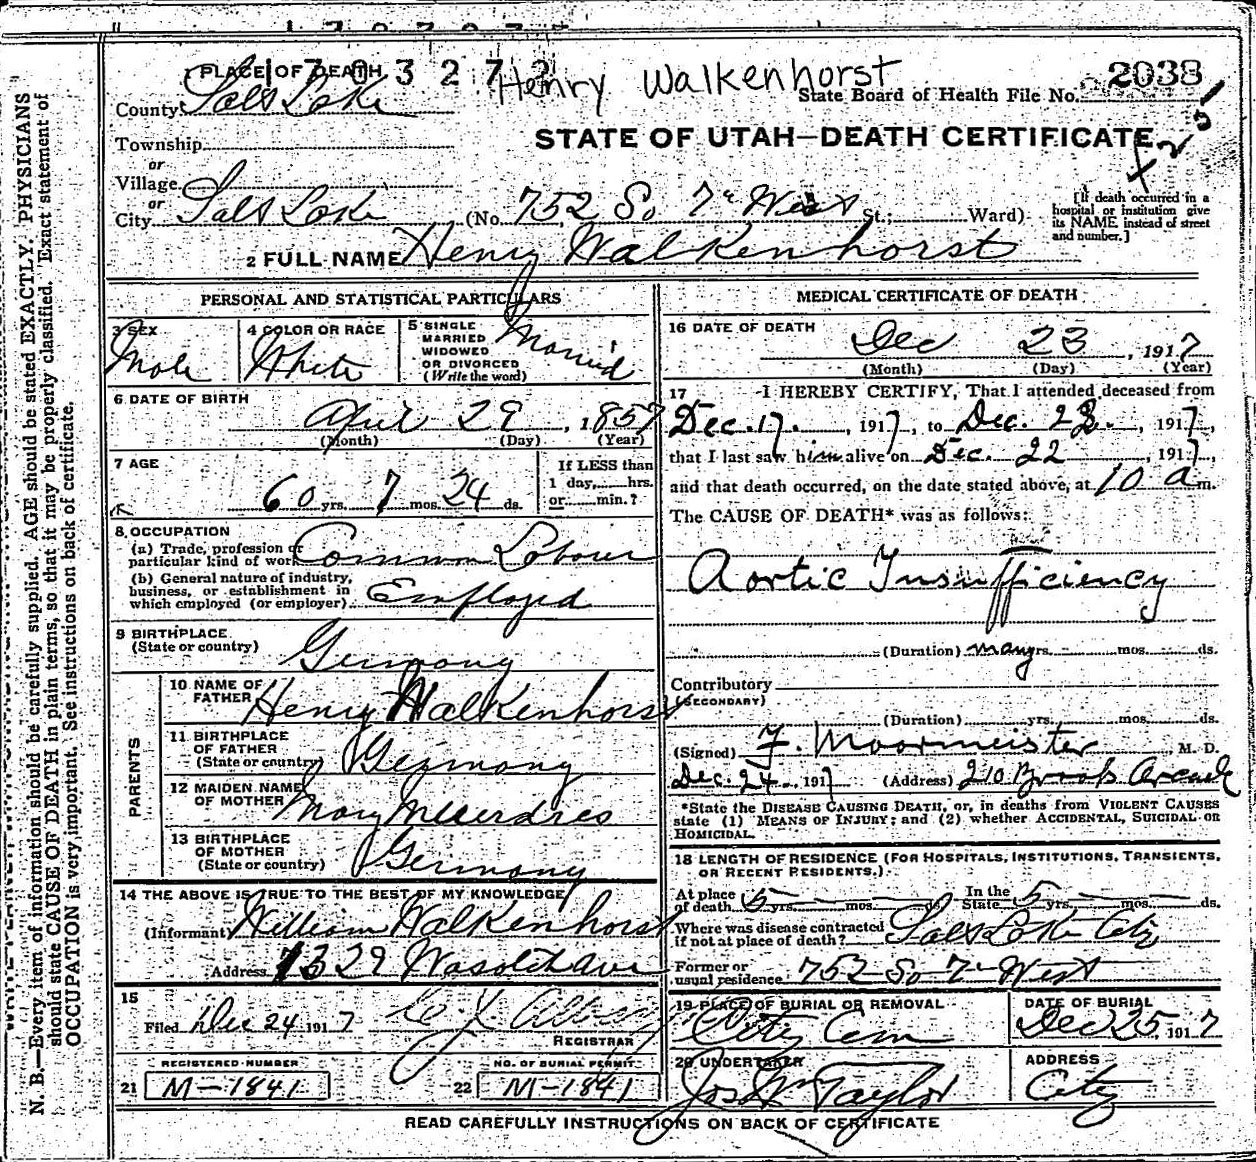 1 PLACE OF DEATH
1703272
Henry Walkenhorst
2038
County Salt Lake
State Board of Health File No.
STATE OF UTAH—DEATH CERTIFICATE
Township
or
Village
or
City Salt Lake (No. 752 So 7th West St.; Ward)
[If death occurred in a hospital or institution give its NAME instead of street and number.]
2 FULL NAME Henry Walkenhorst
PERSONAL AND STATISTICAL PARTICULARS
3 SEX
Male
4 COLOR OR RACE
White
5 SINGLE
MARRIED
WIDOWED
OR DIVORCED
(Write the word)
Married
6 DATE OF BIRTH
April 29, 1857
(Month) (Day) (Year)
7 AGE
60 yrs. 7 mos. 24 ds.
If LESS than
1 day, hrs.
or min.?
8 OCCUPATION
(a) Trade, profession or
particular kind of work Common Labour
(b) General nature of industry,
business, or establishment in
which employed (or employer) Employed
9 BIRTHPLACE
(State or country)
Germany
PARENTS
10 NAME OF
FATHER Henry Walkenhorst
11 BIRTHPLACE
OF FATHER
(State or country) Germany
12 MAIDEN NAME
OF MOTHER Mary Meierdres
13 BIRTHPLACE
OF MOTHER
(State or country) Germany
14 THE ABOVE IS TRUE TO THE BEST OF MY KNOWLEDGE
(Informant) William Walkenhorst
Address 1329 Wasatch Ave
15
Filed Dec 24 1917
REGISTRAR
REGISTERED NUMBER
21 M-1841
NO. OF BURIAL PERMIT
22 M-1841
MEDICAL CERTIFICATE OF DEATH
16 DATE OF DEATH
Dec 23, 1917
(Month) (Day) (Year)
17 I HEREBY CERTIFY, That I attended deceased from
Dec. 17, 1917, to Dec. 23, 1917,
that I last saw him alive on Dec. 22, 1917,
and that death occurred, on the date stated above, at 10 a m.
The CAUSE OF DEATH* was as follows:
Aortic Insufficiency
(Duration) many yrs. mos. ds.
Contributory
(SECONDARY)
(Duration) yrs. mos. ds.
(Signed) F. Moormeister, M. D.
Dec. 24, 1917 (Address) 210 Brooks Arcade
*State the DISEASE CAUSING DEATH, or, in deaths from VIOLENT CAUSES
state (1) MEANS OF INJURY; and (2) whether ACCIDENTAL, SUICIDAL OR
HOMICIDAL.
18 LENGTH OF RESIDENCE (FOR HOSPITALS, INSTITUTIONS, TRANSIENTS,
OR RECENT RESIDENTS.)
At place
of death 5 yrs. mos. ds. In the
State 5 yrs. mos. ds.
Where was disease contracted
if not at place of death? Salt Lake City
Former or
usual residence 752 So 7th West
19 PLACE OF BURIAL OR REMOVAL
City Cem
DATE OF BURIAL
Dec 25, 1917
20 UNDERTAKER
Jos Wm Taylor
ADDRESS
City
READ CAREFULLY INSTRUCTIONS ON BACK OF CERTIFICATE
N. B.—Every item of information should be carefully supplied. AGE should be stated EXACTLY. PHYSICIANS
should state CAUSE OF DEATH in plain terms, so that it may be properly classified. Exact statement of
OCCUPATION is very important. See instructions on back of certificate.